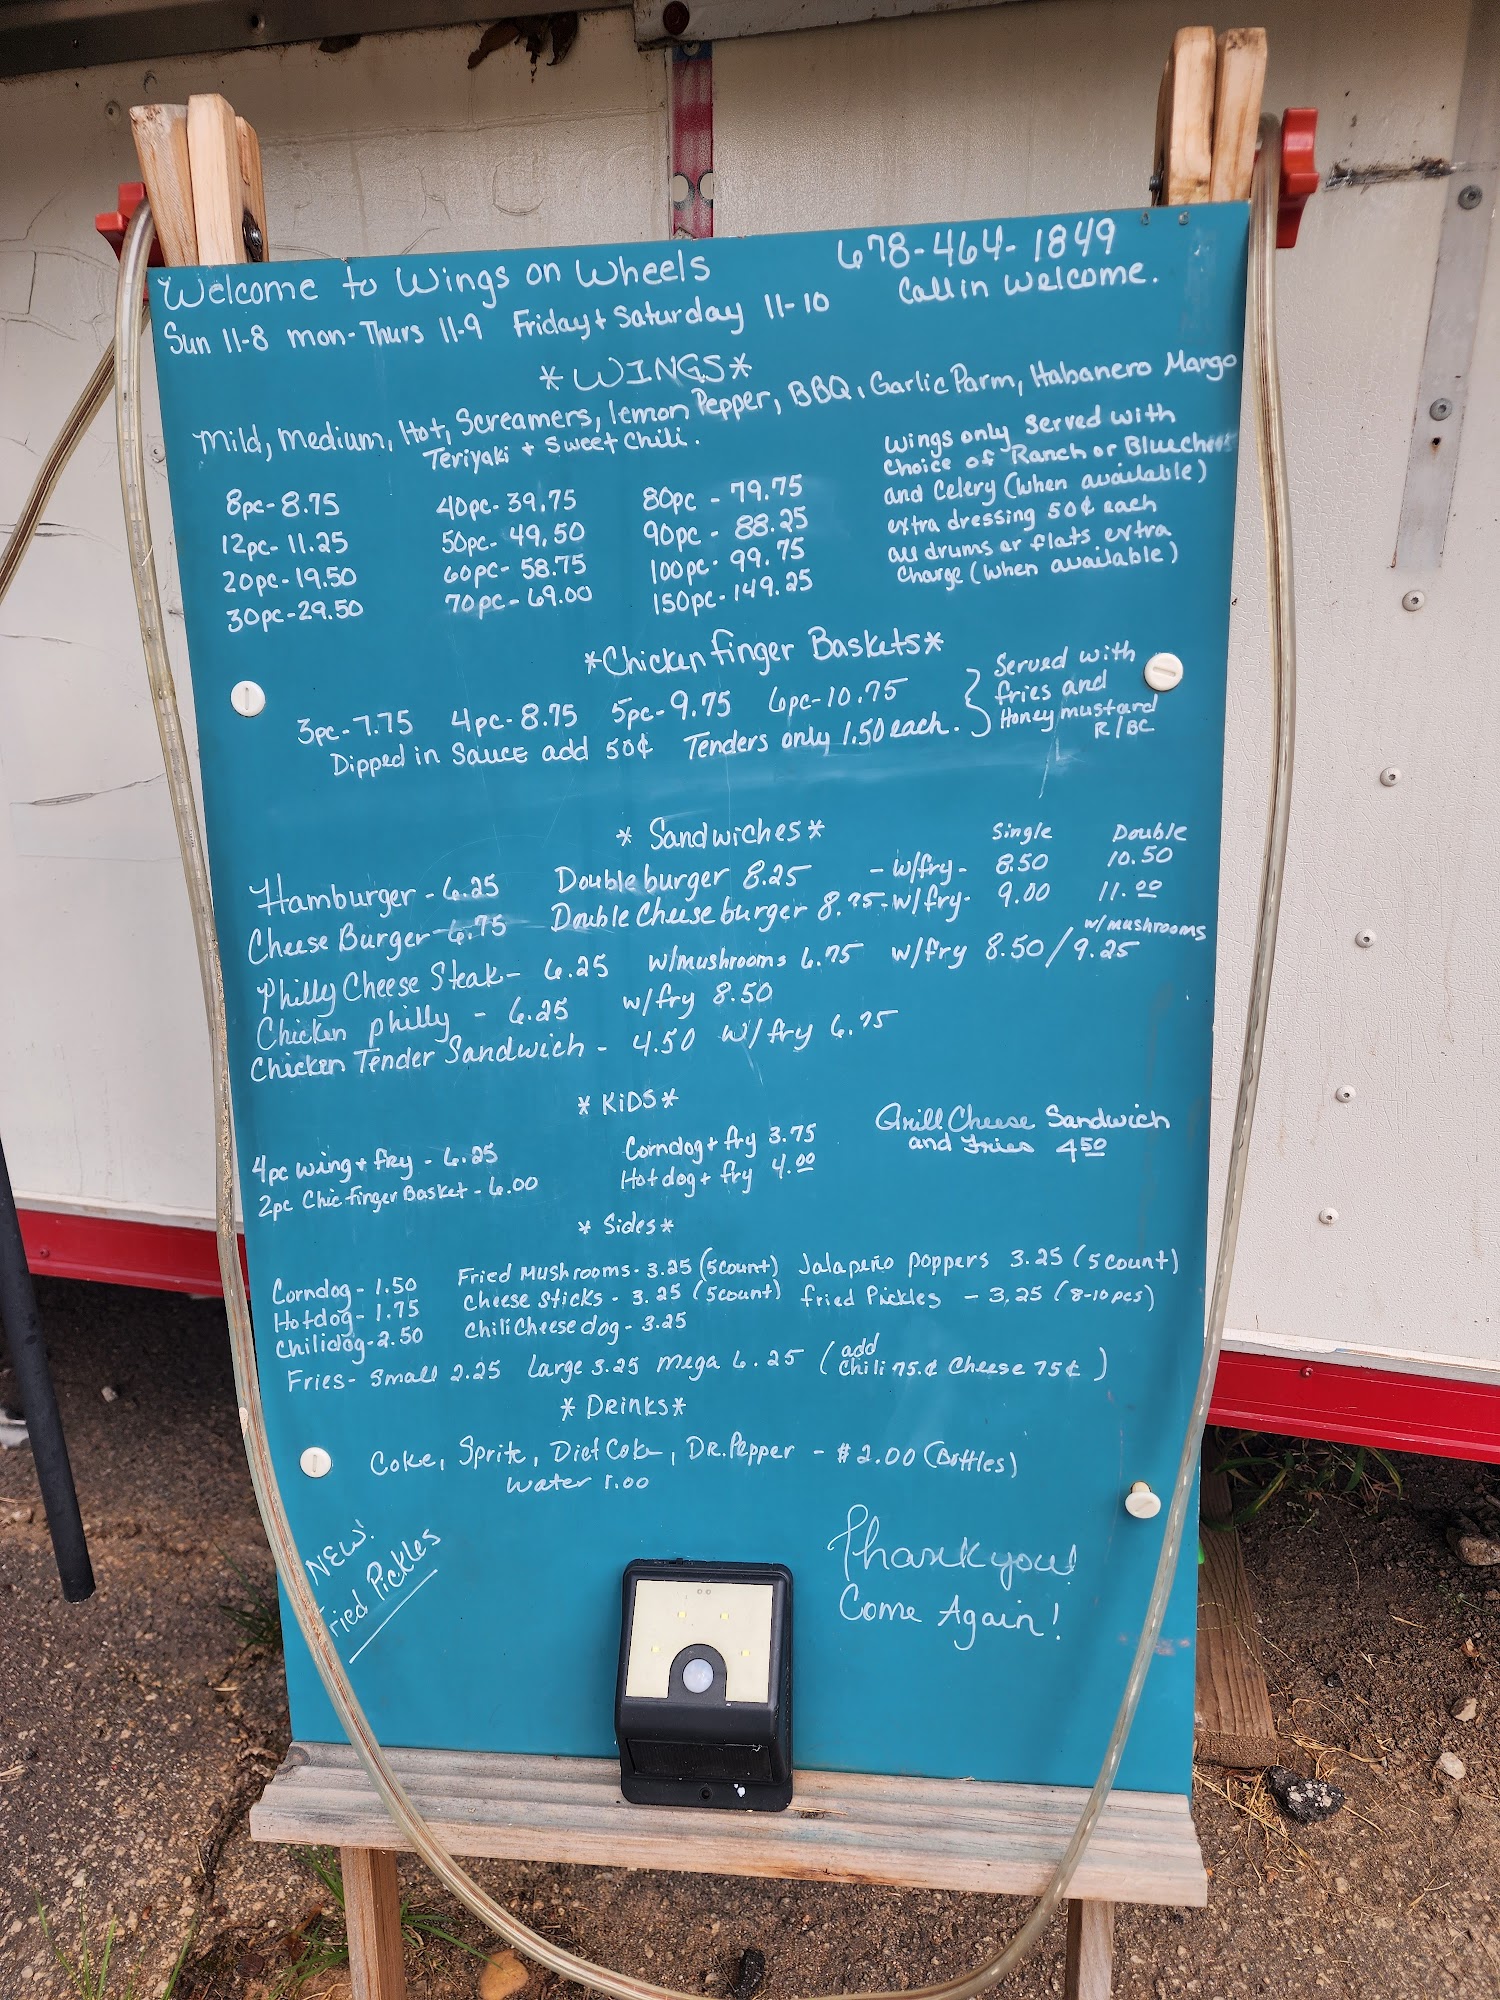 Welcome to Wings on Wheels
678-464-1849
Call in welcome.
Sun 11-8 mon-Thurs 11-9 Friday + Saturday 11-10
*WINGS*
Mild, Medium, Hot, Screamers, lemon Pepper, BBQ, Garlic Parm, Habanero Mango
Teriyaki + Sweet Chili.
8pc-8.75 40pc-39.75 80pc - 79.75
12pc-11.25 50pc-49.50 90pc - 88.25
20pc-19.50 60pc-58.75 100pc-99.75
30pc-29.50 70pc-69.00 150pc-149.25
wings only served with
choice of Ranch or Bluecheese
and Celery (when available)
extra dressing 50¢ each
all drums or flats extra
charge (when available)
*Chicken finger Baskets*
3pc-7.75 4pc-8.75 5pc-9.75 6pc-10.75
Dipped in Sauce add 50¢ Tenders only 1.50 each.
Served with
fries and
Honey mustard
R/BC
* Sandwiches* Single Double
Hamburger - 6.25 Double burger 8.25 - w/fry- 8.50 10.50
Cheese Burger-6.75 Double Cheese burger 8.75-w/fry- 9.00 11.00
w/mushrooms
Philly Cheese Steak- 6.25 w/mushrooms 6.75 w/fry 8.50/9.25
Chicken philly - 6.25 w/fry 8.50
Chicken Tender Sandwich - 4.50 w/fry 6.75
* KiDS*
4pc wing + fry - 6.25 Corndog + fry 3.75 Grill Cheese Sandwich
2pc Chic finger Basket - 6.00 Hotdog + fry 4.00 and Fries 4.50
* Sides*
Corndog - 1.50 Fried Mushrooms-3.25 (5count) Jalapeño poppers 3.25 (5 count)
Hotdog - 1.75 Cheese Sticks - 3.25 (5count) fried Pickles - 3.25 (8-10pcs)
Chilidog-2.50 Chili Cheese dog - 3.25
Fries- Small 2.25 Large 3.25 mega 6.25 (add Chili 75¢ Cheese 75¢)
* DRiNKs*
Coke, Sprite, Diet Coke, DR. Pepper - $2.00 (Bottles)
Water 1.00
NEW!
Fried Pickles
Thank you!
Come Again!